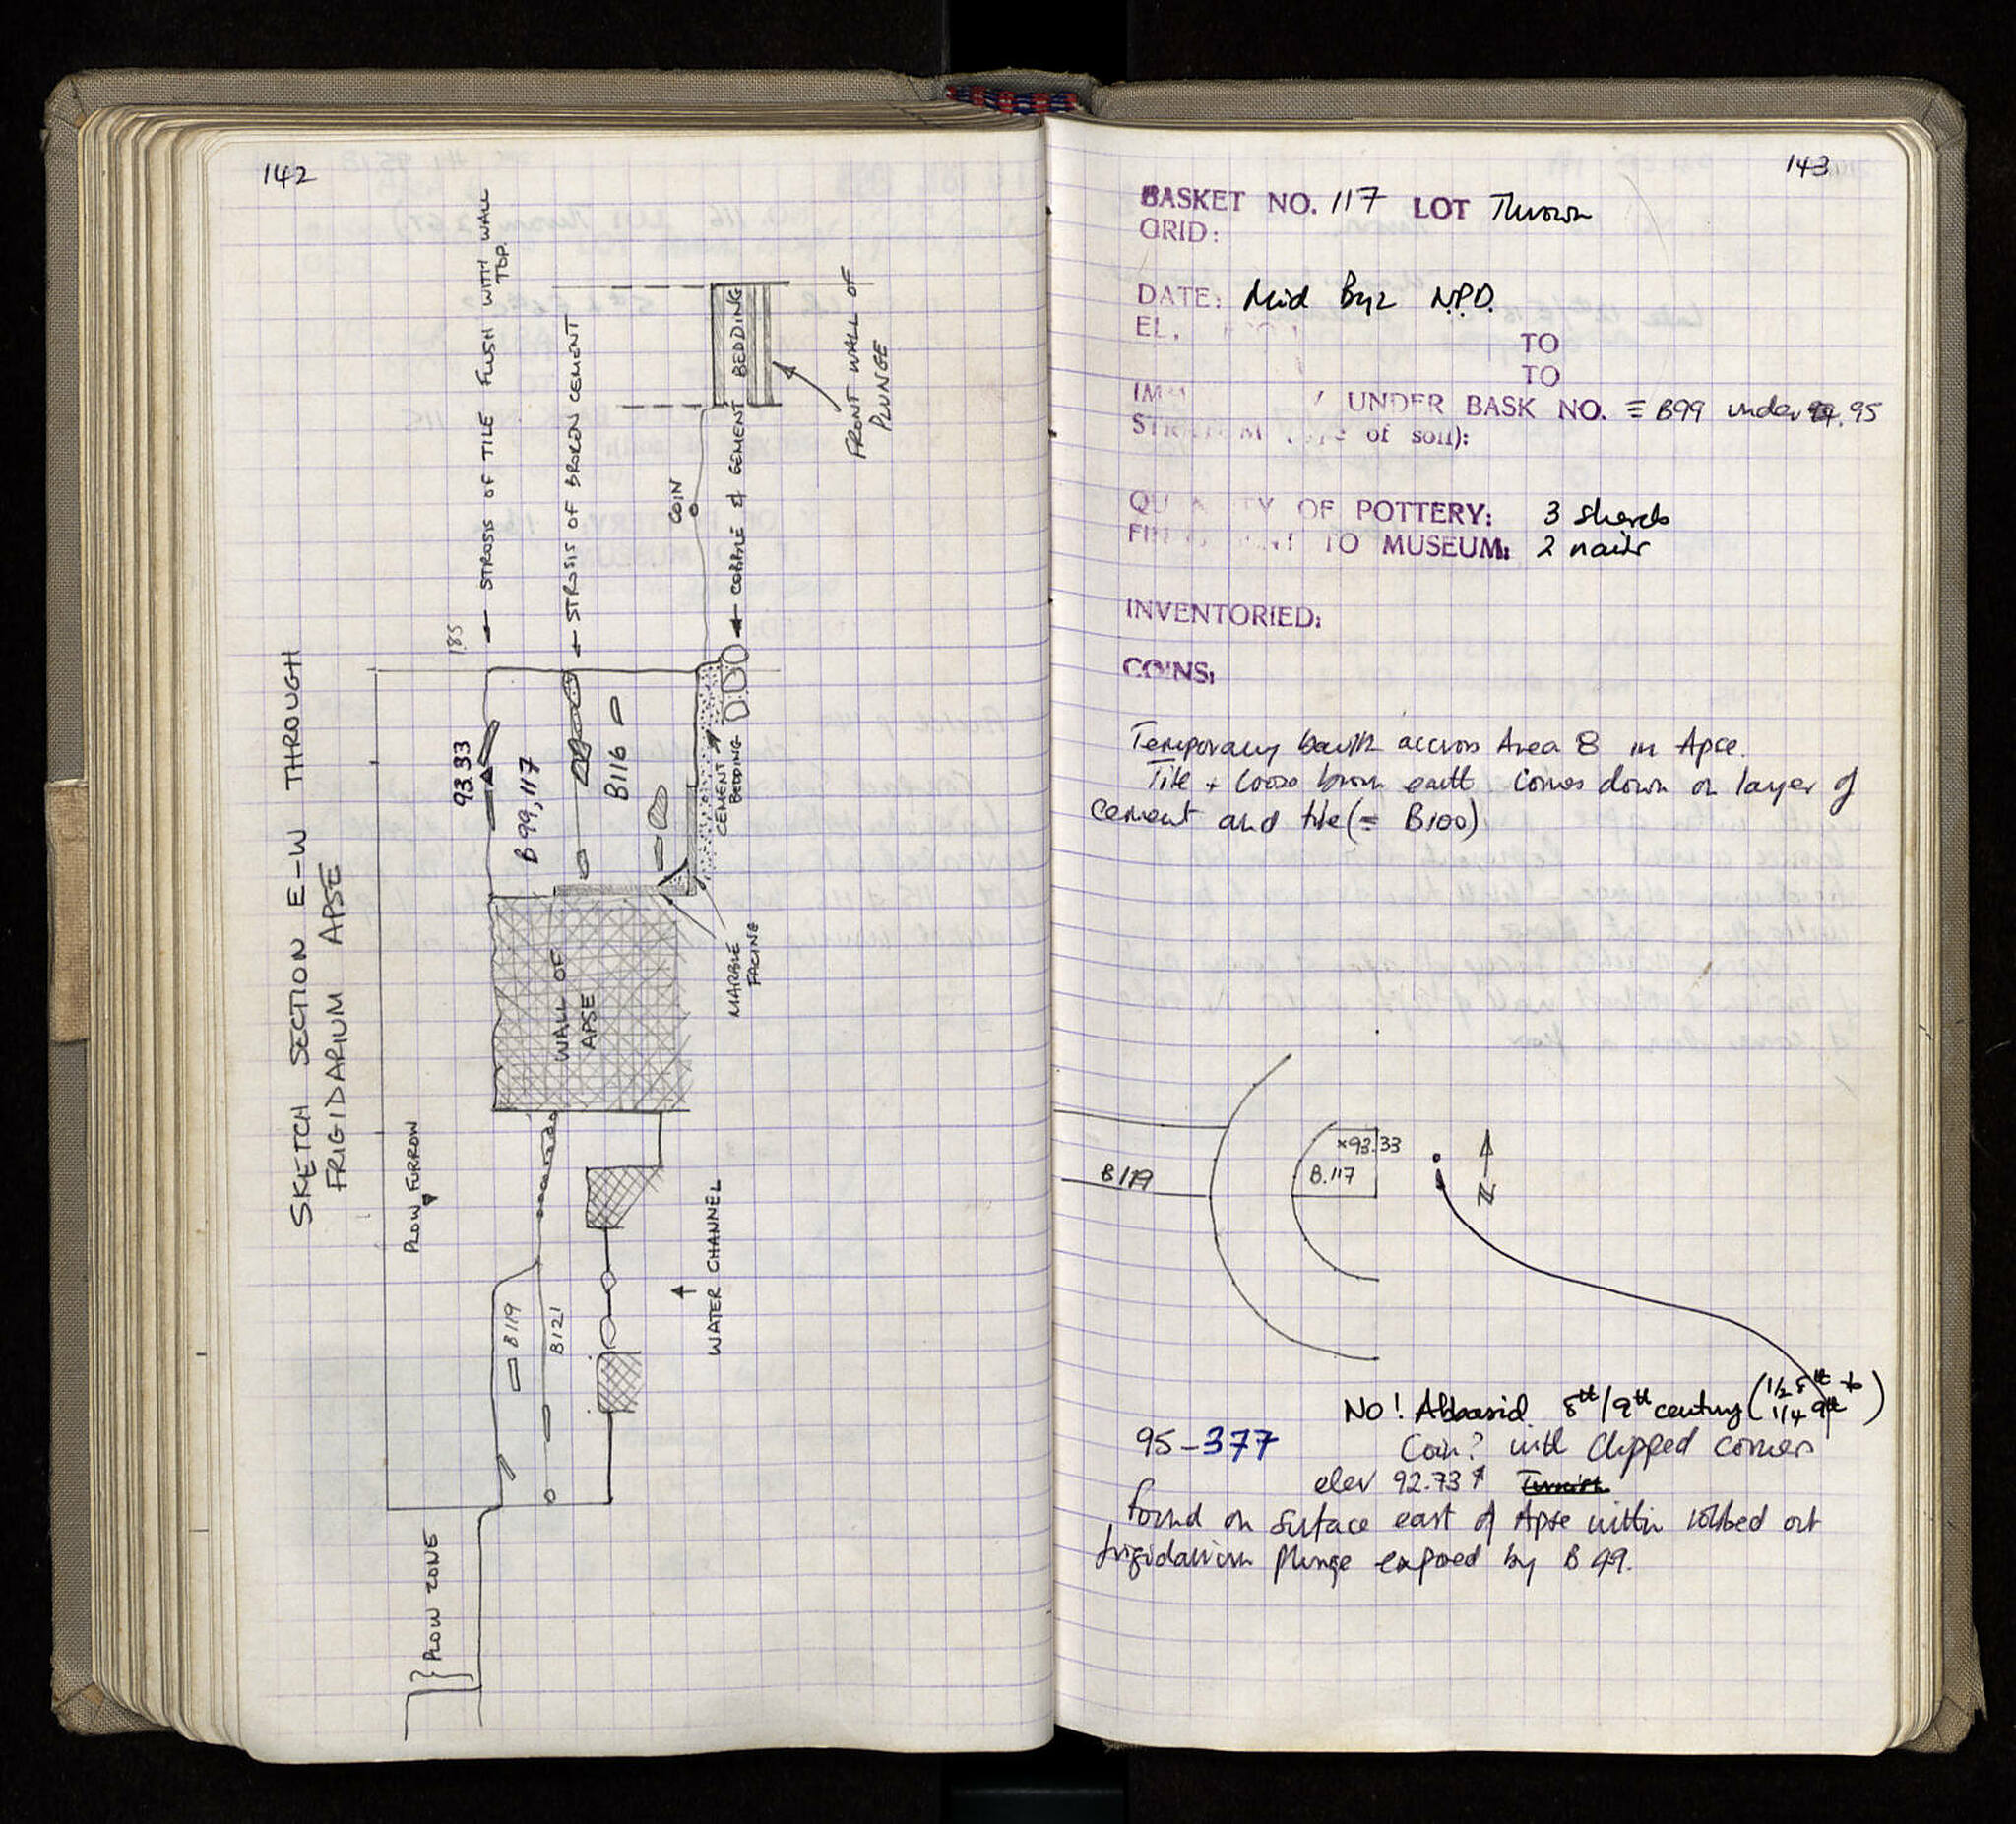 142
SKETCH SECTION E-W THROUGH
FRIGIDARIUM APSE
185
STROSIS OF TILE FLUSH WITH WALL
TOP.
STROSIS OF BROKEN CEMENT
93.33
B99,117
B116
COIN
COBBLE & CEMENT BEDDING
FRONT WALL OF
PLUNGE
CEMENT
BEDDING
MARBLE
FACING
WALL OF
APSE
PLOW FURROW
WATER CHANNEL
B119
B121
PLOW ZONE
143
BASKET NO. 117 LOT Thrown
GRID:
DATE: Mid Byz N.P.D.
EL.
TO
TO
UNDER BASK NO. = B99 under 95
of soil):
OF POTTERY: 3 sherds
TO MUSEUM: 2 nails
INVENTORIED:
COINS:
Temporary baulk accross Area 8 in Apse.
Tile + loose brown earth. Comes down on layer of
cement and tile (= B100)
B119
×93.33
B.117
N
No! Abbasid 8th/9th century (1/2 8th to
1/4 9th)
95-377 Coin? with clipped corners
elev 92.73
found on surface east of Apse within robbed out
frigidarium Plunge exposed by B 99.